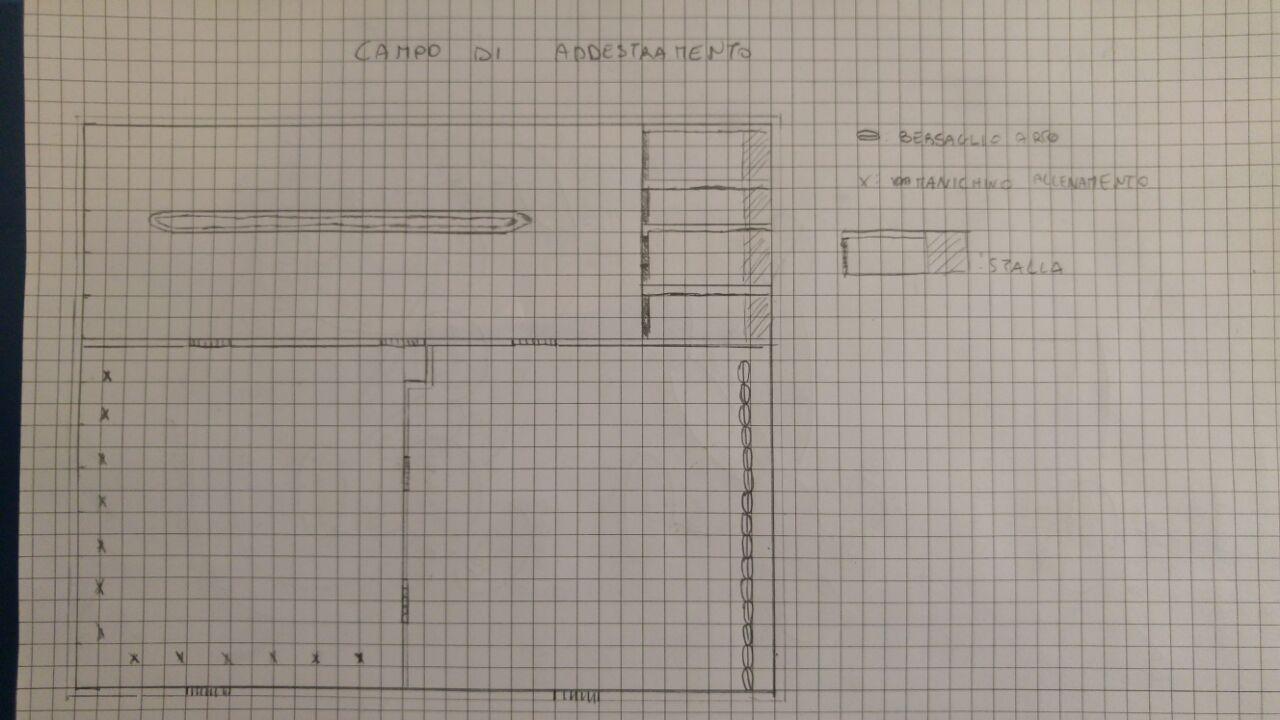 CAMPO DI ADDESTRAMENTO
: BERSAGLIO ARCO
X: MANICHINO ALLENAMENTO
: STALLA